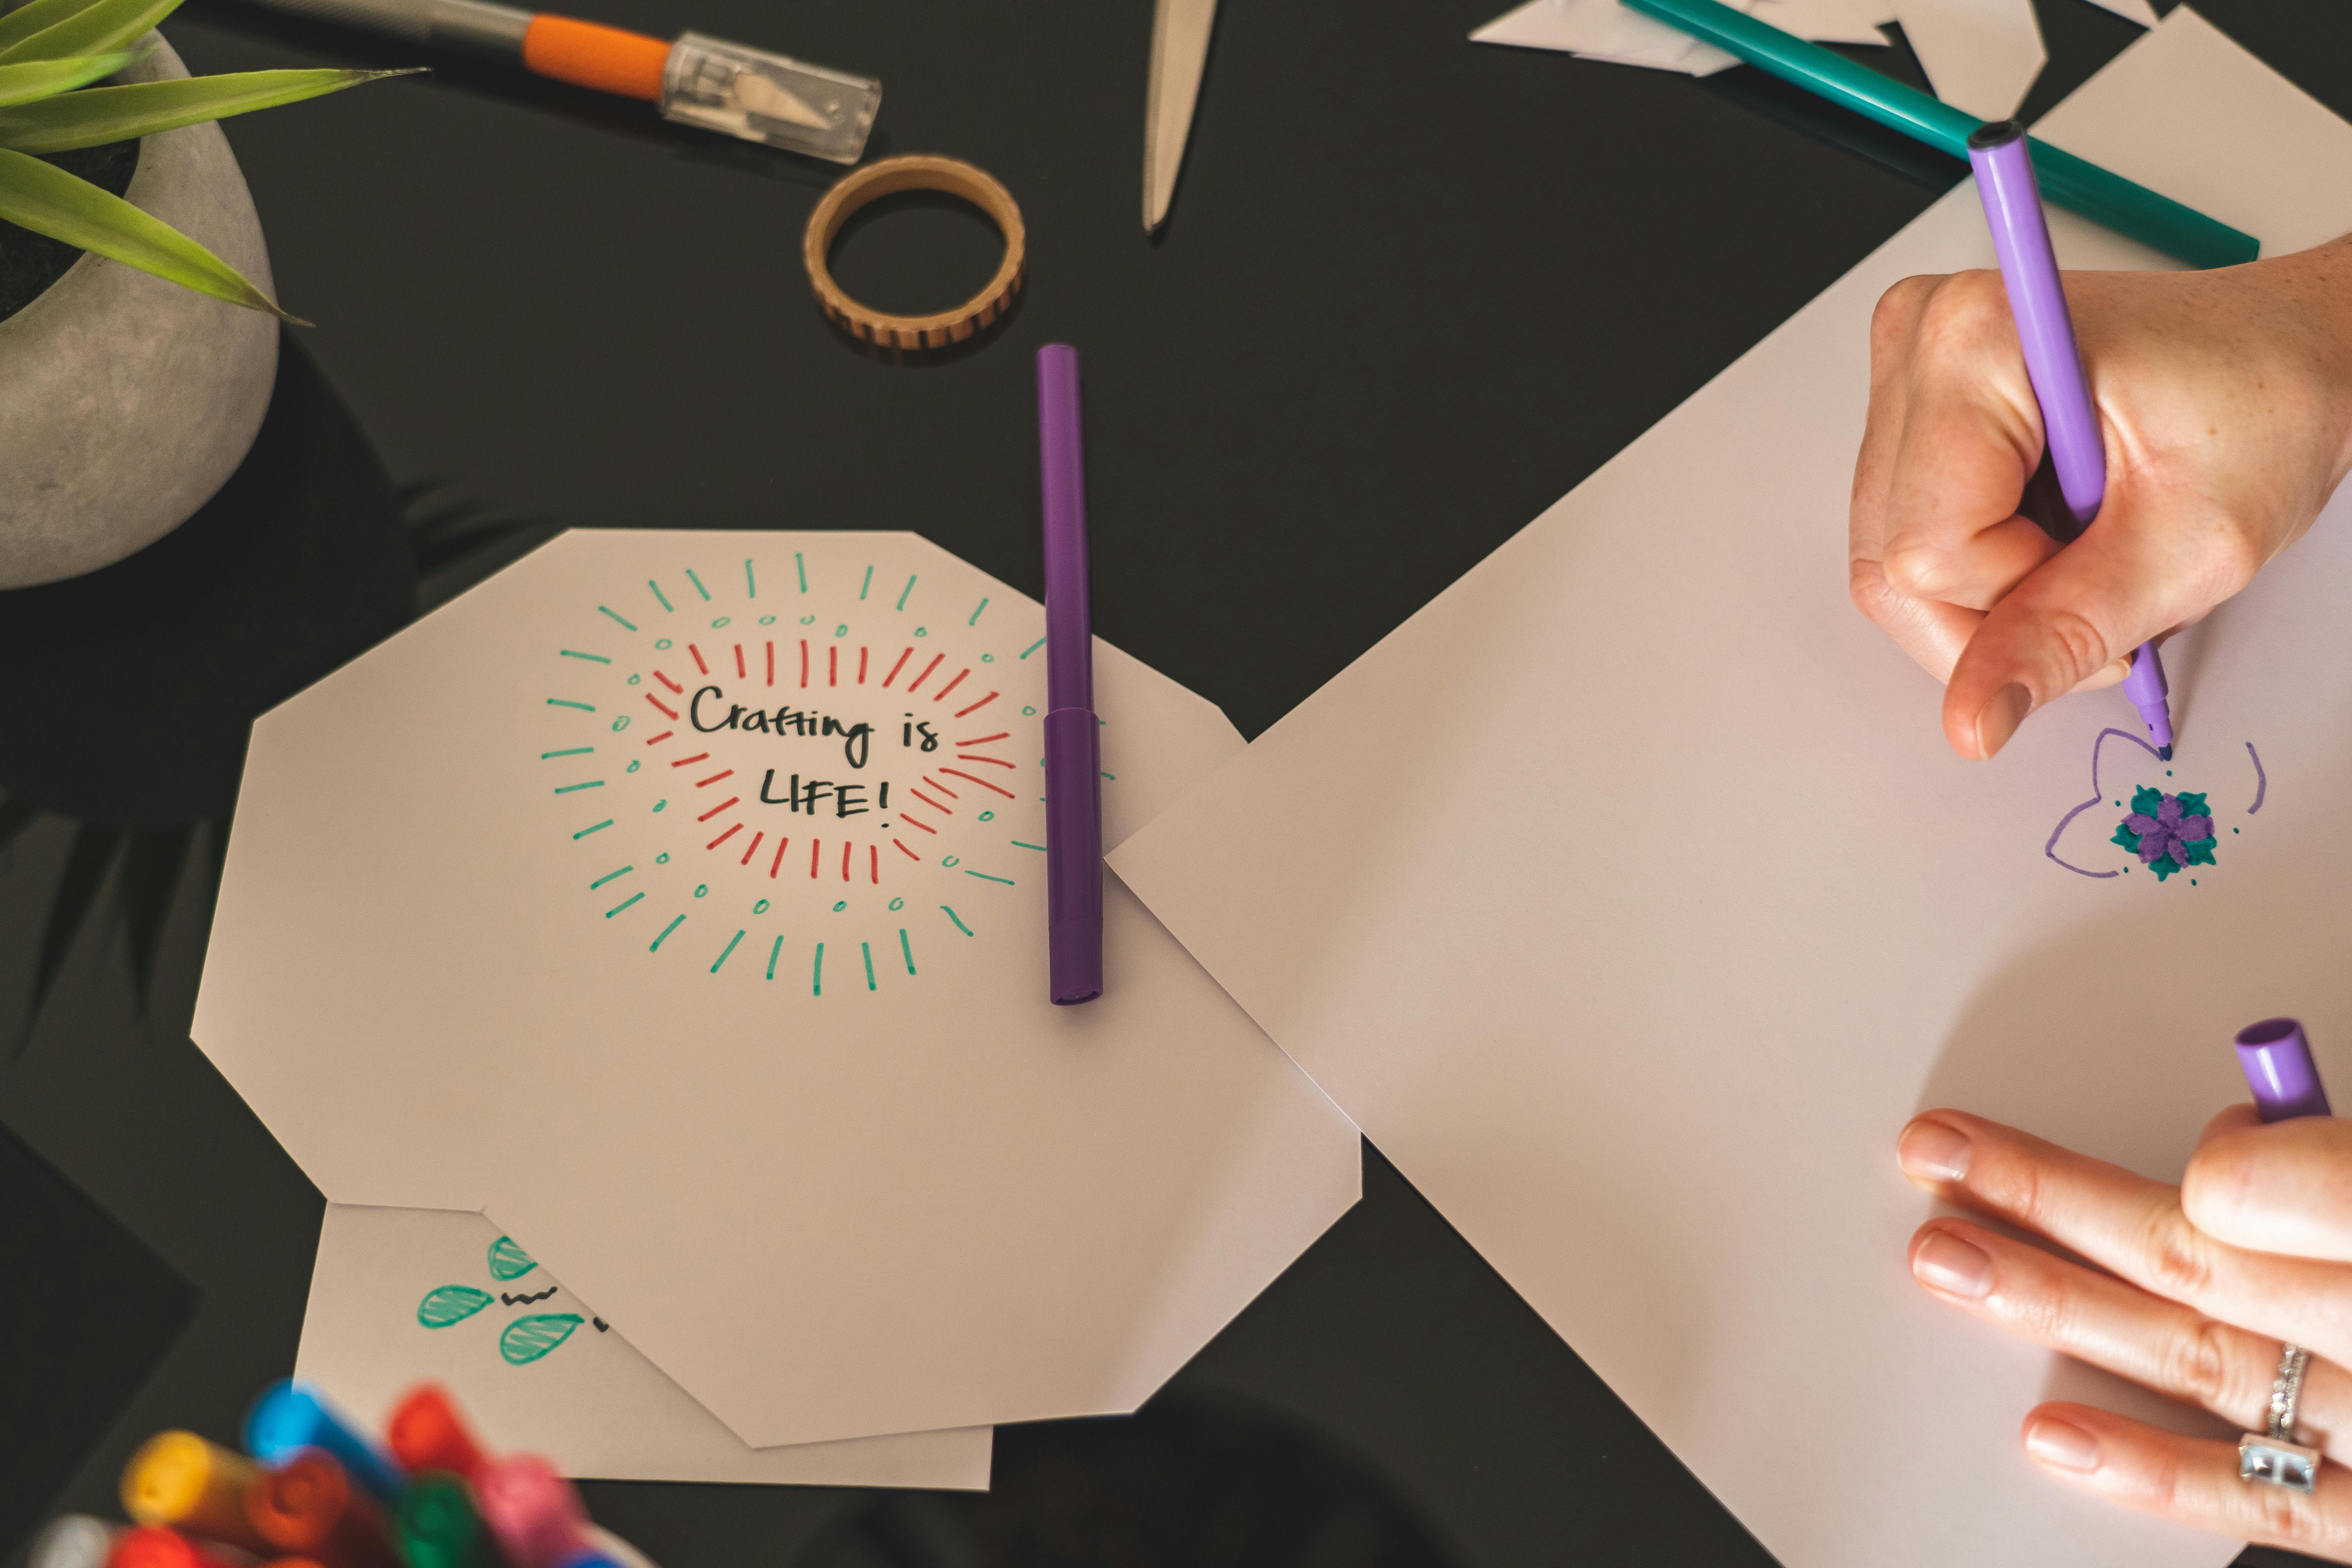 Crafting is
LIFE!